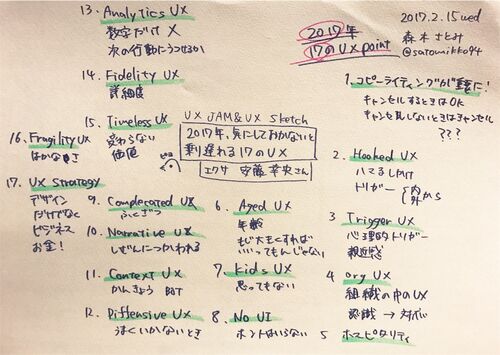 2017年
17のUX point
2017.2.15 wed
森木さとみ
@satomikko94
UX JAM & UX Sketch
2017年、気にしておかないと
乗り遅れる17のUX
エクサ 安藤幸央さん
1. コピーライティングが重要に!
キャンセルするときはOK
キャンセルしないときはキャンセル
???
2. Hooked UX
ハマるしかけ
トリガー 内外から
3. Trigger UX
心理的トリガー
親近感
4. Org UX
組織の中のUX
認識 → 対応
5 ホスピタリティ
6. Aged UX
年齢
もじ大きくすれば
いいってもんじゃない
7. kids UX
思ってもない
8. No UI
ホントはいらない
9. Complecated UX
ふくざつ
10. Narrative UX
しぜんにつかわれる
11. Context UX
かんきょう BOT
12. Diffensive UX
うまくいかないとき
13. Analytics UX
数字だけ X
次の行動にうつせるか
14. Fidelity UX
詳細度
15. Timeless UX
変わらない
価値
16. Fragility UX
はかなさ
17. UX Strategy
デザイン
だけでなく
ビジネス
お金!